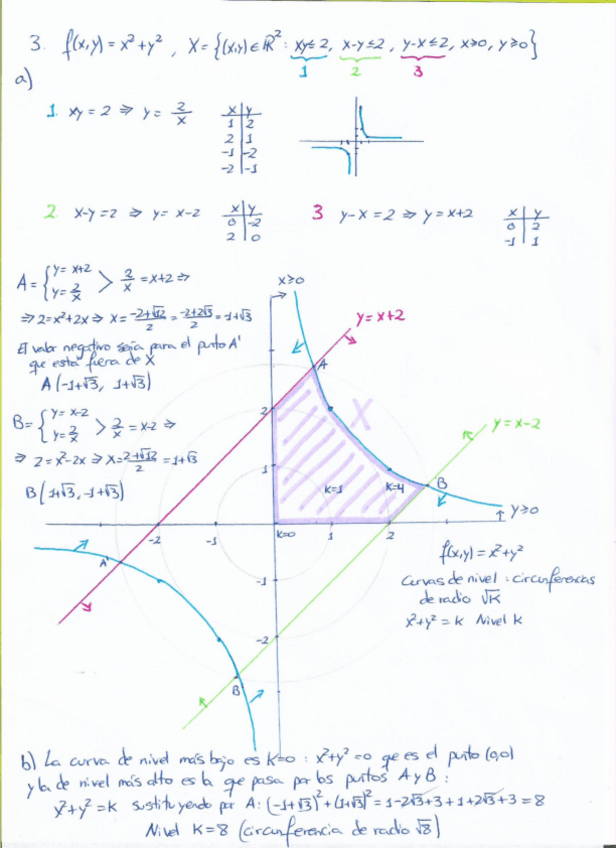 3. f(x,y) = x²+y² , X = {(x,y)∈ℝ² : xy≤2, x-y≤2, y-x≤2, x≥0, y≥0}
1 2 3
a)
1. xy = 2 ⇒ y = 2/x
x | y
1 | 2
2 | 1
-1 | -2
-2 | -1
2 x-y=2 ⇒ y= x-2
x | y
0 | -2
2 | 0
3 y-x=2 ⇒ y=x+2
x | y
0 | 2
-1 | 1
A = { y= x+2 y= 2/x > 2/x = x+2 ⇒
⇒ 2=x²+2x ⇒ x= (-2+√12)/2 = (-2+2√3)/2 = -1+√3
El valor negativo sería para el punto A'
que está fuera de X
A(-1+√3, 1+√3)
B= { y= x-2 y= 2/x > 2/x = x-2 ⇒
⇒ 2=x²-2x ⇒ x= (2+√12)/2 = 1+√3
B(1+√3, -1+√3)
x≥0
y=x+2
A
2
X
y=x-2
1
K=1
K=4
B
y≥0
K=0
-2
-1
1
2
A'
-1
-2
B'
f(x,y) = x²+y²
Curvas de nivel : circunferencias
de radio √K
x²+y² = k Nivel k
b) La curva de nivel más bajo es K=0 : x²+y²=0 qe es el punto (0,0)
y la de nivel más alto es la qe pasa por los puntos A y B :
x²+y² = k sustituyendo por A: (-1+√3)²+(1+√3)² = 1-2√3+3+1+2√3+3 = 8
Nivel K=8 (circunferencia de radio √8)